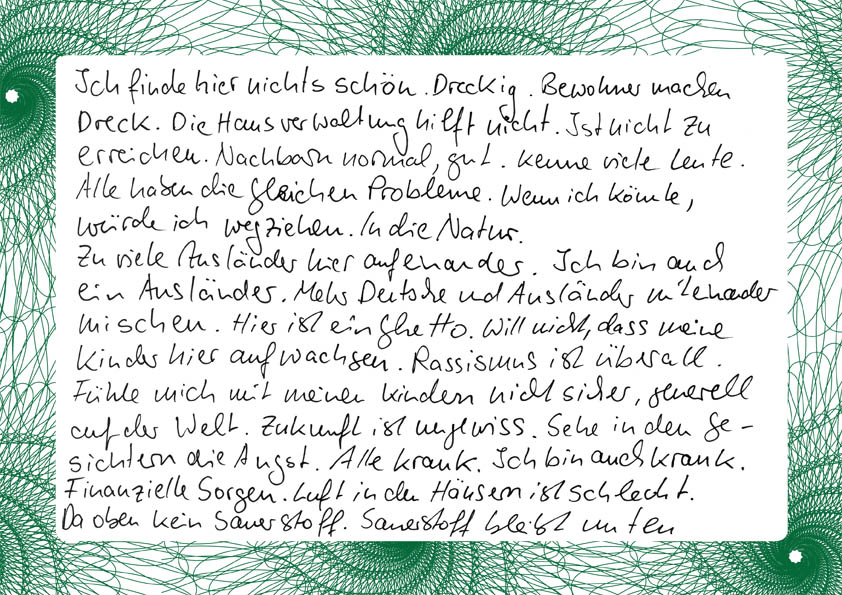 Ich finde hier nichts schön. Dreckig. Bewohner machen
Dreck. Die Hausverwaltung hilft nicht. Ist nicht zu
erreichen. Nachbarn normal, gut. kenne viele Leute.
Alle haben die gleichen Probleme. Wenn ich könnte,
würde ich wegziehen. In die Natur.
Zu viele Ausländer hier aufeinander. Ich bin auch
ein Ausländer. Mehr Deutsche und Ausländer miteinander
mischen. Hier ist ein Ghetto. Will nicht, dass meine
Kinder hier aufwachsen. Rassismus ist überall.
Fühle mich mit meinen Kindern nicht sicher, generell
auf der Welt. Zukunft ist ungewiss. Sehe in den Ge-
sichtern die Angst. Alle krank. Ich bin auch krank.
Finanzielle Sorgen. Luft in den Häusern ist schlecht.
Da oben kein Sauerstoff. Sauerstoff bleibt unten